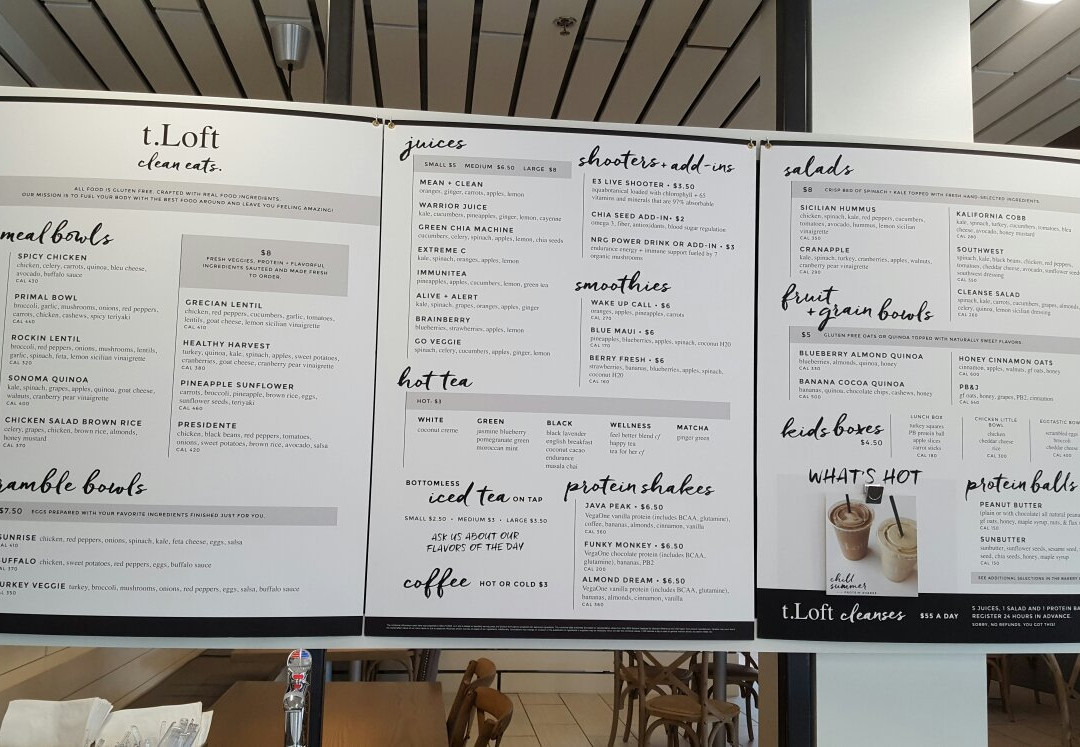 t.Loft
clean eats.
ALL FOOD IS GLUTEN FREE. CRAFTED WITH REAL FOOD INGREDIENTS.
OUR MISSION IS TO FUEL YOUR BODY WITH THE BEST FOOD AROUND AND LEAVE YOU FEELING AMAZING!
meal bowls
SPICY CHICKEN
chicken, celery, carrots, quinoa, bleu cheese,
avocado, buffalo sauce
CAL 430
PRIMAL BOWL
broccoli, garlic, mushrooms, onions, red peppers,
carrots, chicken, cashews, spicy teriyaki
CAL 460
ROCKIN LENTIL
broccoli, red peppers, onions, mushrooms, lentils,
garlic, spinach, feta, lemon sicilian vinaigrette
CAL 320
SONOMA QUINOA
kale, spinach, grapes, apples, quinoa, goat cheese,
walnuts, cranberry pear vinaigrette
CAL 400
CHICKEN SALAD BROWN RICE
celery, grapes, chicken, brown rice, almonds,
honey mustard
CAL 370
$8
FRESH VEGGIES, PROTEIN + FLAVORFUL
INGREDIENTS SAUTEED AND MADE FRESH
TO ORDER.
GRECIAN LENTIL
chicken, red peppers, cucumbers, garlic, tomatoes,
lentils, goat cheese, lemon sicilian vinaigrette
CAL 410
HEALTHY HARVEST
turkey, quinoa, kale, spinach, apples, sweet potatoes,
cranberries, goat cheese, cranberry pear vinaigrette
CAL 380
PINEAPPLE SUNFLOWER
carrots, broccoli, pineapple, brown rice, eggs,
sunflower seeds, teriyaki
CAL 460
PRESIDENTE
chicken, black beans, red peppers, tomatoes,
onions, sweet potatoes, brown rice, avocado, salsa
CAL 420
ramble bowls
$7.50 EGGS PREPARED WITH YOUR FAVORITE INGREDIENTS FINISHED JUST FOR YOU.
SUNRISE chicken, red peppers, onions, spinach, kale, feta cheese, eggs, salsa
CAL 410
UFFALO chicken, sweet potatoes, red peppers, eggs, buffalo sauce
CAL 370
URKEY VEGGIE turkey, broccoli, mushrooms, onions, red peppers, eggs, salsa, buffalo sauce
CAL 350
juices
SMALL $5 MEDIUM $6.50 LARGE $8
MEAN + CLEAN
oranges, ginger, carrots, apples, lemon
WARRIOR JUICE
kale, cucumbers, pineapples, ginger, lemon, cayenne
GREEN CHIA MACHINE
cucumbers, celery, spinach, apples, lemon, chia seeds
EXTREME C
kale, spinach, oranges, apples, lemon
IMMUNITEA
pineapples, apples, cucumbers, lemon, green tea
ALIVE + ALERT
kale, spinach, grapes, oranges, apples, ginger
BRAINBERRY
blueberries, strawberries, apples, lemon
GO VEGGIE
spinach, celery, cucumbers, apples, ginger, lemon
shooters + add-ins
E3 LIVE SHOOTER • $3.50
aquabotanical loaded with chlorophyll + 65
vitamins and minerals that are 97% absorbable
CHIA SEED ADD-IN • $2
omega 3, fiber, antioxidants, blood sugar regulation
NRG POWER DRINK OR ADD-IN • $3
endurance energy + immune support fueled by 7
organic mushrooms
smoothies
WAKE UP CALL • $6
oranges, apples, pineapples, carrots
CAL 270
BLUE MAUI • $6
pineapples, blueberries, apples, spinach, coconut H20
CAL 170
BERRY FRESH • $6
strawberries, bananas, blueberries, apples, spinach,
coconut H20
CAL 160
hot tea
HOT: $3
WHITE
coconut creme
GREEN
jasmine blueberry
pomegranate green
moroccan mint
BLACK
black lavender
english breakfast
coconut cacao
endurance
masala chai
WELLNESS
feel better blend c/
happy tea
tea for her c/
MATCHA
ginger green
BOTTOMLESS
iced tea ON TAP
SMALL $2.50 • MEDIUM $3 • LARGE $3.50
ASK US ABOUT OUR
FLAVORS OF THE DAY
coffee HOT OR COLD $3
protein shakes
JAVA PEAK • $6.50
VegaOne vanilla protein (includes BCAA, glutamine),
coffee, bananas, almonds, cinnamon, vanilla
CAL 360
FUNKY MONKEY • $6.50
VegaOne chocolate protein (includes BCAA,
glutamine), bananas, PB2
CAL 300
ALMOND DREAM • $6.50
VegaOne vanilla protein (includes BCAA, glutamine),
bananas, almonds, cinnamon, vanilla
CAL 360
salads
$8 CRISP BED OF SPINACH + KALE TOPPED WITH FRESH HAND-SELECTED INGREDIENTS.
SICILIAN HUMMUS
chicken, spinach, kale, red peppers, cucumbers,
tomatoes, avocado, hummus, lemon sicilian
vinaigrette
CAL 350
CRANAPPLE
kale, spinach, turkey, cranberries, apples, walnuts,
cranberry pear vinaigrette
CAL 290
KALIFORNIA COBB
kale, spinach, turkey, cucumbers, tomatoes, bleu
cheese, avocado, honey mustard
CAL 280
SOUTHWEST
spinach, kale, black beans, chicken, red peppers,
tomatoes, cheddar cheese, avocado, sunflower seeds
southwest dressing
CAL 360
CLEANSE SALAD
spinach, kale, carrots, cucumbers, grapes, almonds,
celery, quinoa, lemon sicilian dressing
CAL 350
fruit
+ grain bowls
$5 GLUTEN FREE OATS OR QUINOA TOPPED WITH NATURALLY SWEET FLAVORS.
BLUEBERRY ALMOND QUINOA
blueberries, almonds, quinoa, honey
CAL 330
BANANA COCOA QUINOA
bananas, quinoa, chocolate chips, cashews, honey
CAL 500
HONEY CINNAMON OATS
cinnamon, apples, walnuts, gf oats, honey
CAL 600
PB&J
gf oats, honey, grapes, PB2, cinnamon
kids boxes
$4.50
LUNCH BOX
turkey squares
PB protein ball
apple slices
carrot sticks
CAL 180
CHICKEN LITTLE
BOWL
chicken
cheddar cheese
rice
CAL 300
EGGTASTIC BOW
scrambled eggs
broccoli
cheddar cheese
CAL 400
WHAT'S HOT
chill
summer
protein balls
PEANUT BUTTER
(plain or with chocolate) all natural peanut
gf oats, honey, maple syrup, nuts, & flax
CAL 150
SUNBUTTER
sunbutter, sunflower seeds, sesame seed,
seed, chia seeds, honey, maple syrup
CAL 150
SEE ADDITIONAL SELECTIONS IN THE BAKERY
t.Loft cleanses $55 A DAY
5 JUICES, 1 SALAD AND 1 PROTEIN BA
REGISTER 24 HOURS IN ADVANCE.
SORRY, NO REFUNDS. YOU GOT THIS!